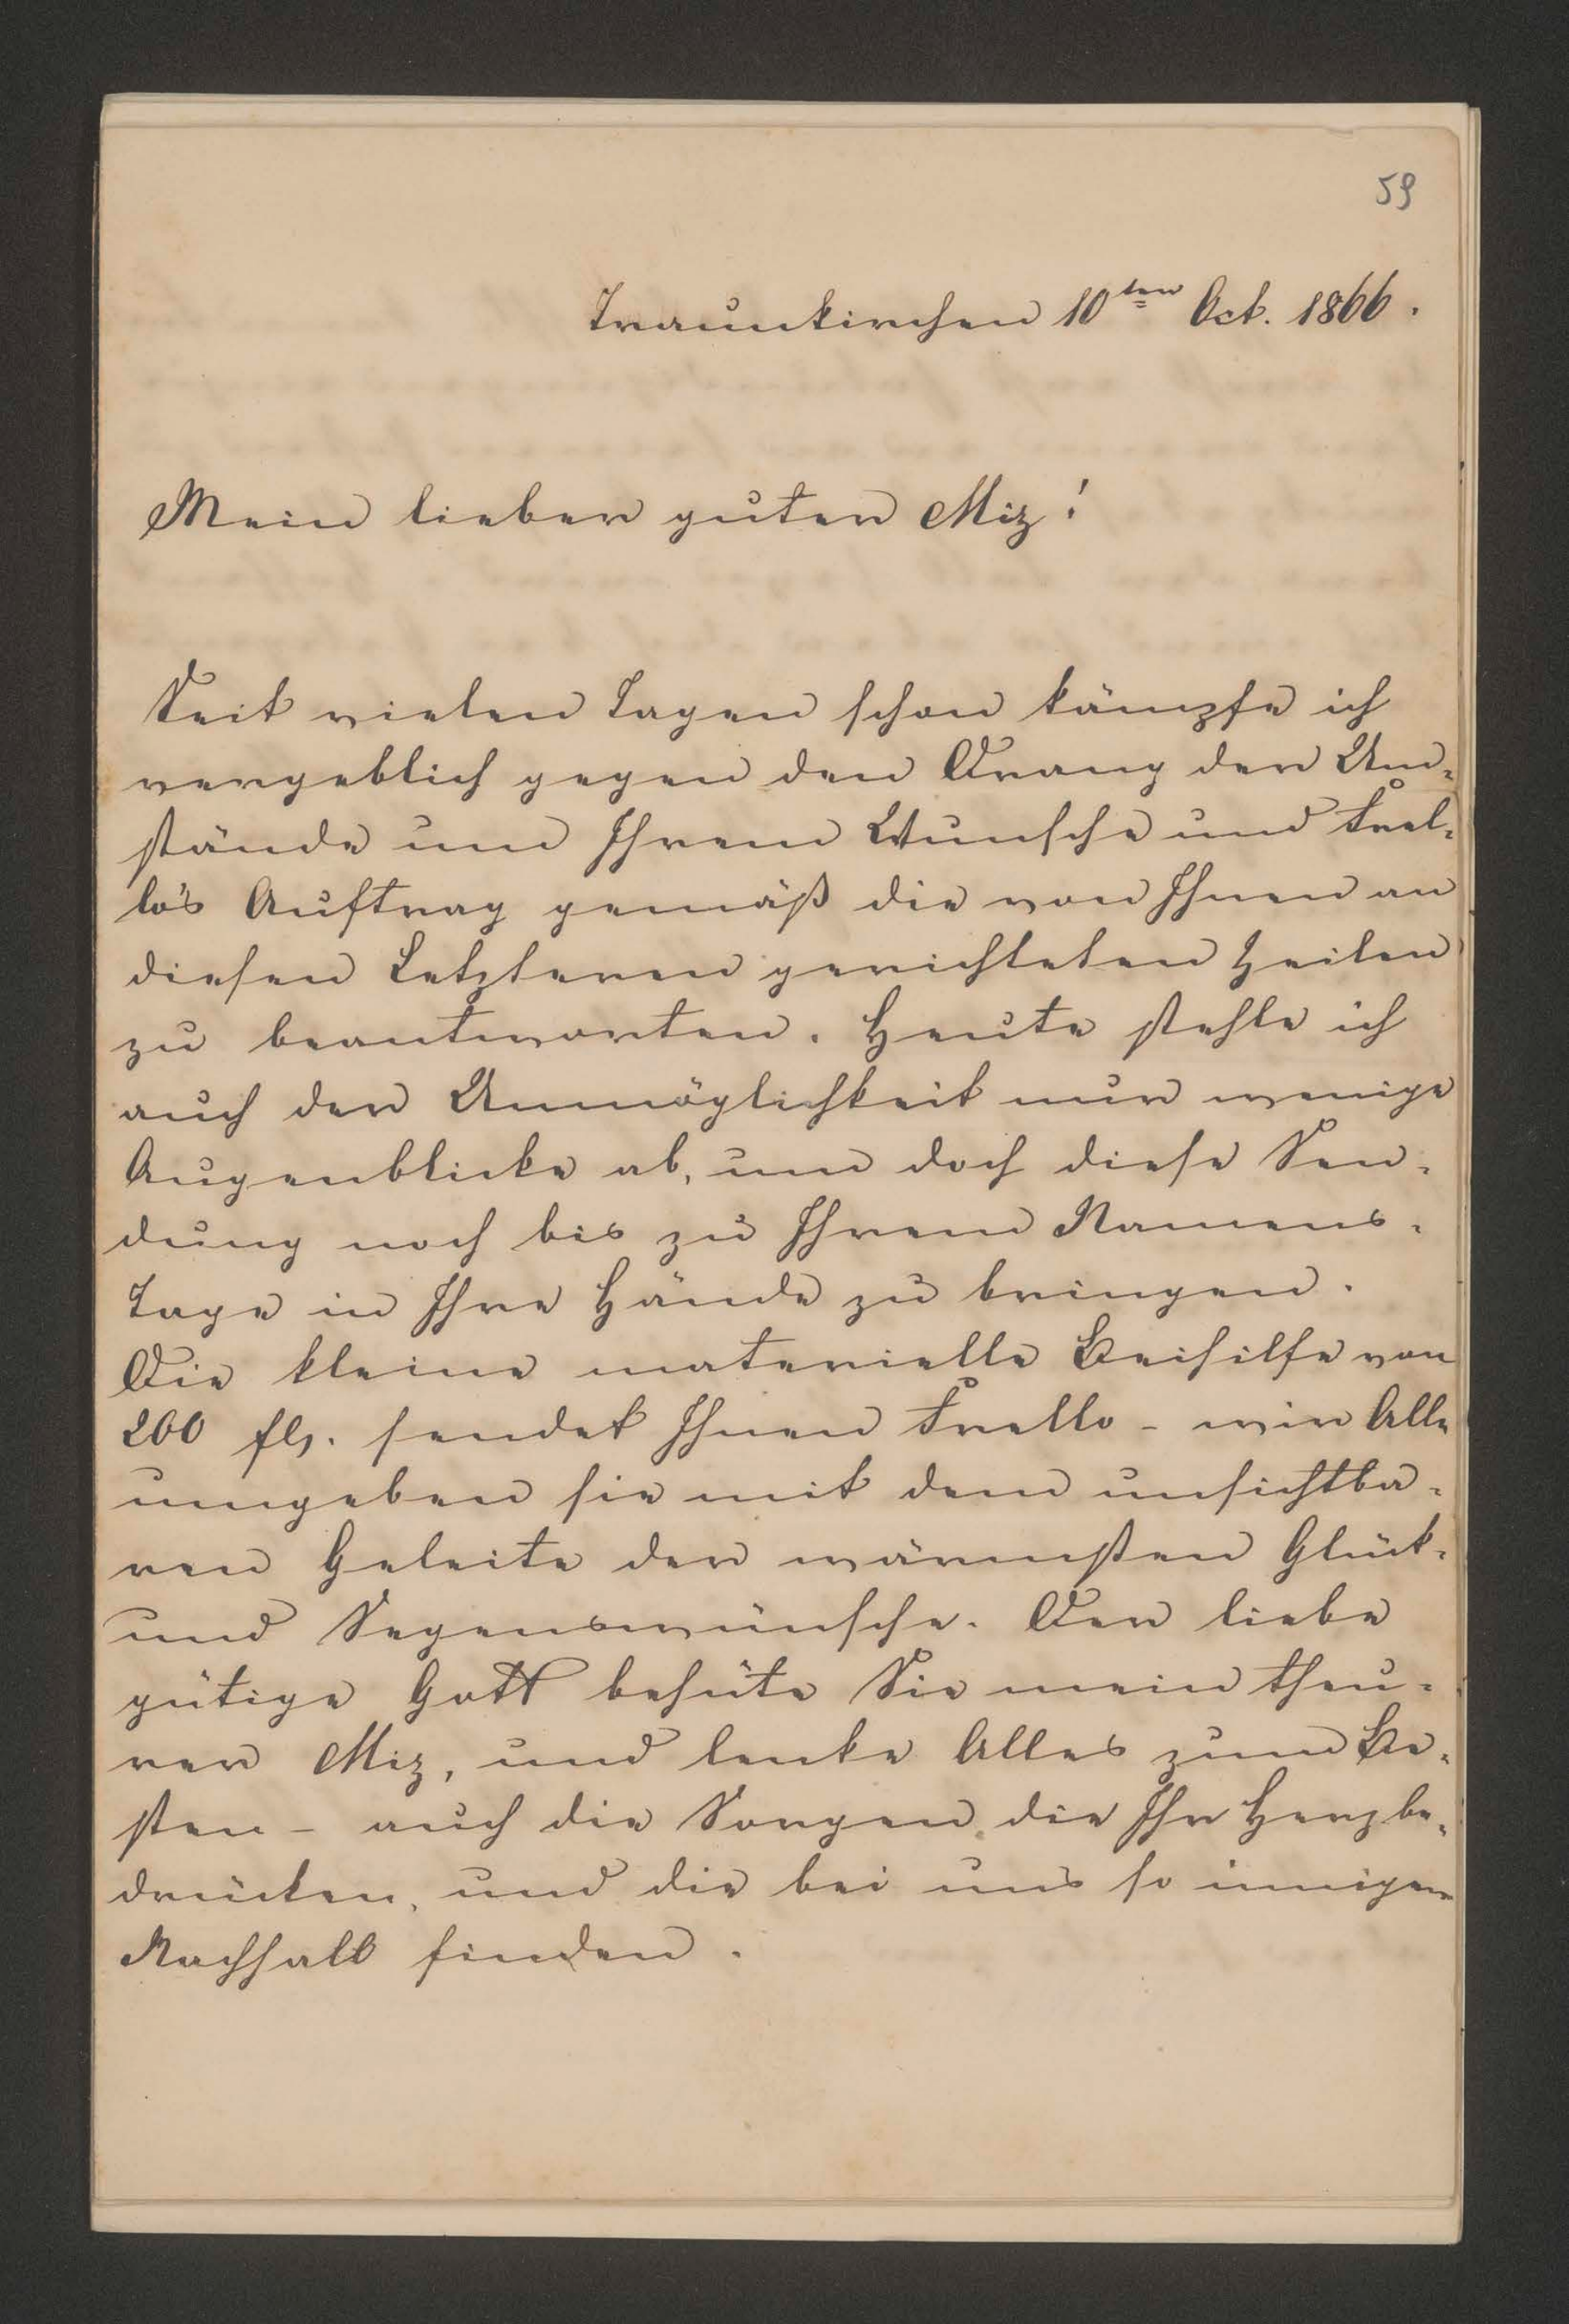 59
Traunkirchen 10ten Oct. 1866.
Mein lieber guter Miz!
Seit vielen Tagen schon kämpfe ich
vergeblich gegen den Drang der Um=
stände um Ihrem Wunsche und Frel=
lo's Auftrag gemäß die von Ihnen an
diesen Letzteren gerichteten Zeilen
zu beantworten. Heute stehle ich
auch der Unmöglichkeit nur wenige
Augenblicke ab, um doch diese Sen=
dung noch bis zu Ihrem Namens=
Tage in Ihre Hände zu bringen.
Die kleine materielle Beihilfe von
200 fl. sendet Ihnen Frello - wir Alle
umgeben sie mit dem unsichtba=
ren Geleite der wärmsten Glück=
und Segenswünsche. Der liebe
gütige Gott behüte Sie mein theu=
rer Miz, und lenke Alles zum Be=
sten - auch die Sorgen die Ihr Herz be=
drücken, und die bei uns so innigen
Nachhall finden.